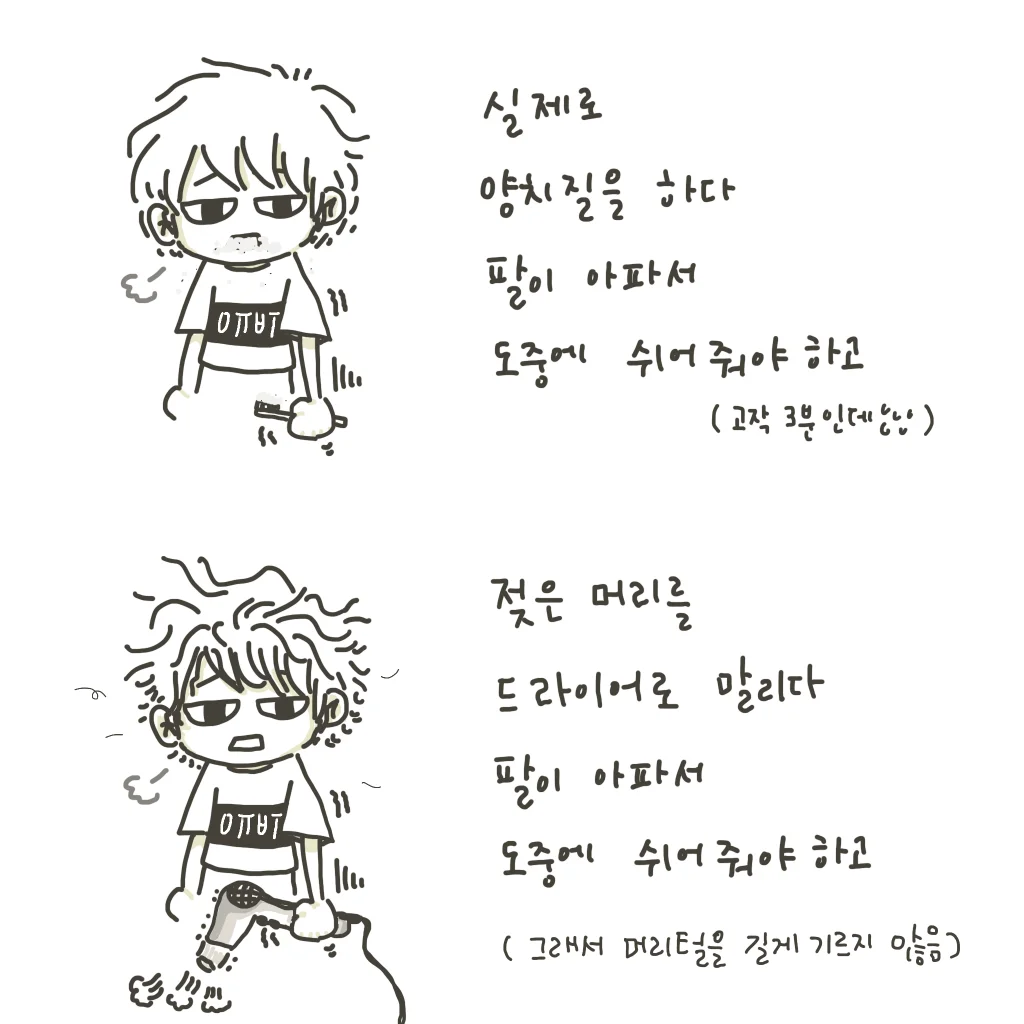 실제로
양치질을 하다
팔이 아파서
도중에 쉬어줘야 하고
(고작 3분인데)
젖은 머리를
드라이어로 말리다
팔이 아파서
도중에 쉬어줘야 하고
(그래서 머리털을 길게 기르지 않음)